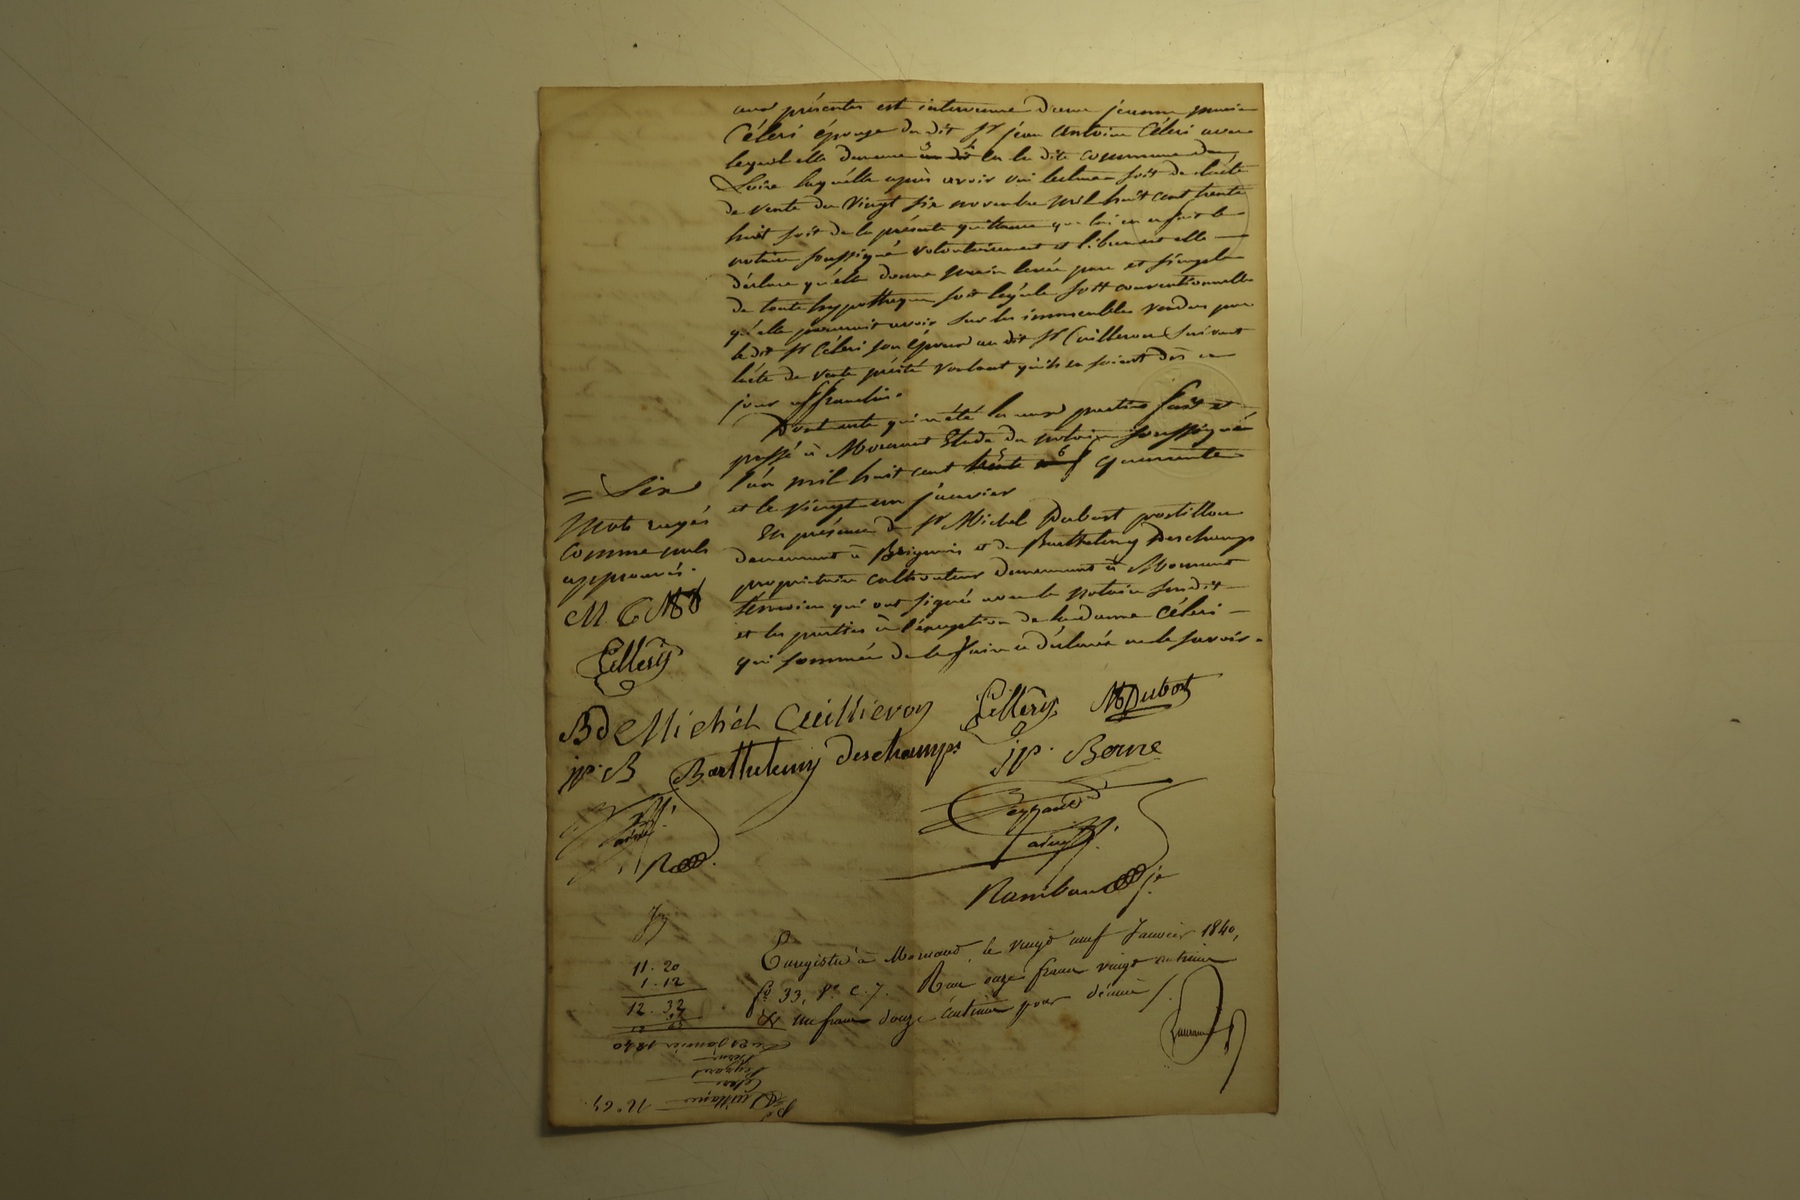 aux présentes est intervenue dame jeanne marie
Céleri épouse du dit Sr jean Antoine Céleri avec
lequel elle demeure en la dite commune de
Loire laquelle après avoir oui lecture soit de l'acte
de vente du vingt six novembre mil huit cent trente
huit soit de la présente quittance que lui en a fait le
notaire soussigné volontairement et librement elle
déclare qu'elle donne main levée pure et simple
de toute hypothèque soit légale soit conventionnelle
qu'elle pourrait avoir sur les immeubles vendus par
le dit Sr Céleri son époux au dit Sr Cuilleron suivant
l'acte de vente précité voulant qu'ils en soient dès ce
jour affranchis.
Dont acte qui a été lu aux parties fait et
passé à Mornant Etude du notaire soussigné
l'an mil huit cent trente quarante
et le vingt un janvier
En présence de Sr Michel Dubost postillon
demeurant à Brignais et de Barthelemy Deschamps
propriétaire cultivateur demeurant à Mornant
témoins qui ont signé avec le notaire susdit
et les parties à l'éxeption de la dame Céleri
qui sommée de le faire a déclaré ne le savoir.
= Six
mots rayés
comme nuls
approuvés.
M. C MD
Celleris
BD eMichel Cuillieron Celleris MDubost
jp. B Barthelemy Deschamps jp. Berne
Peyzaud
R
Rambaud je
Enregistré à Mornand, le vingt neuf Janvier 1840,
fo 33, Ro c. 7. Reçu onze francs vingt centimes
& un franc douze centimes pour décime
11. 20
1. 12
12. 32
Du 21 janvier 1840
Berne
Peyzaud
Céleri
Quittance No 64.